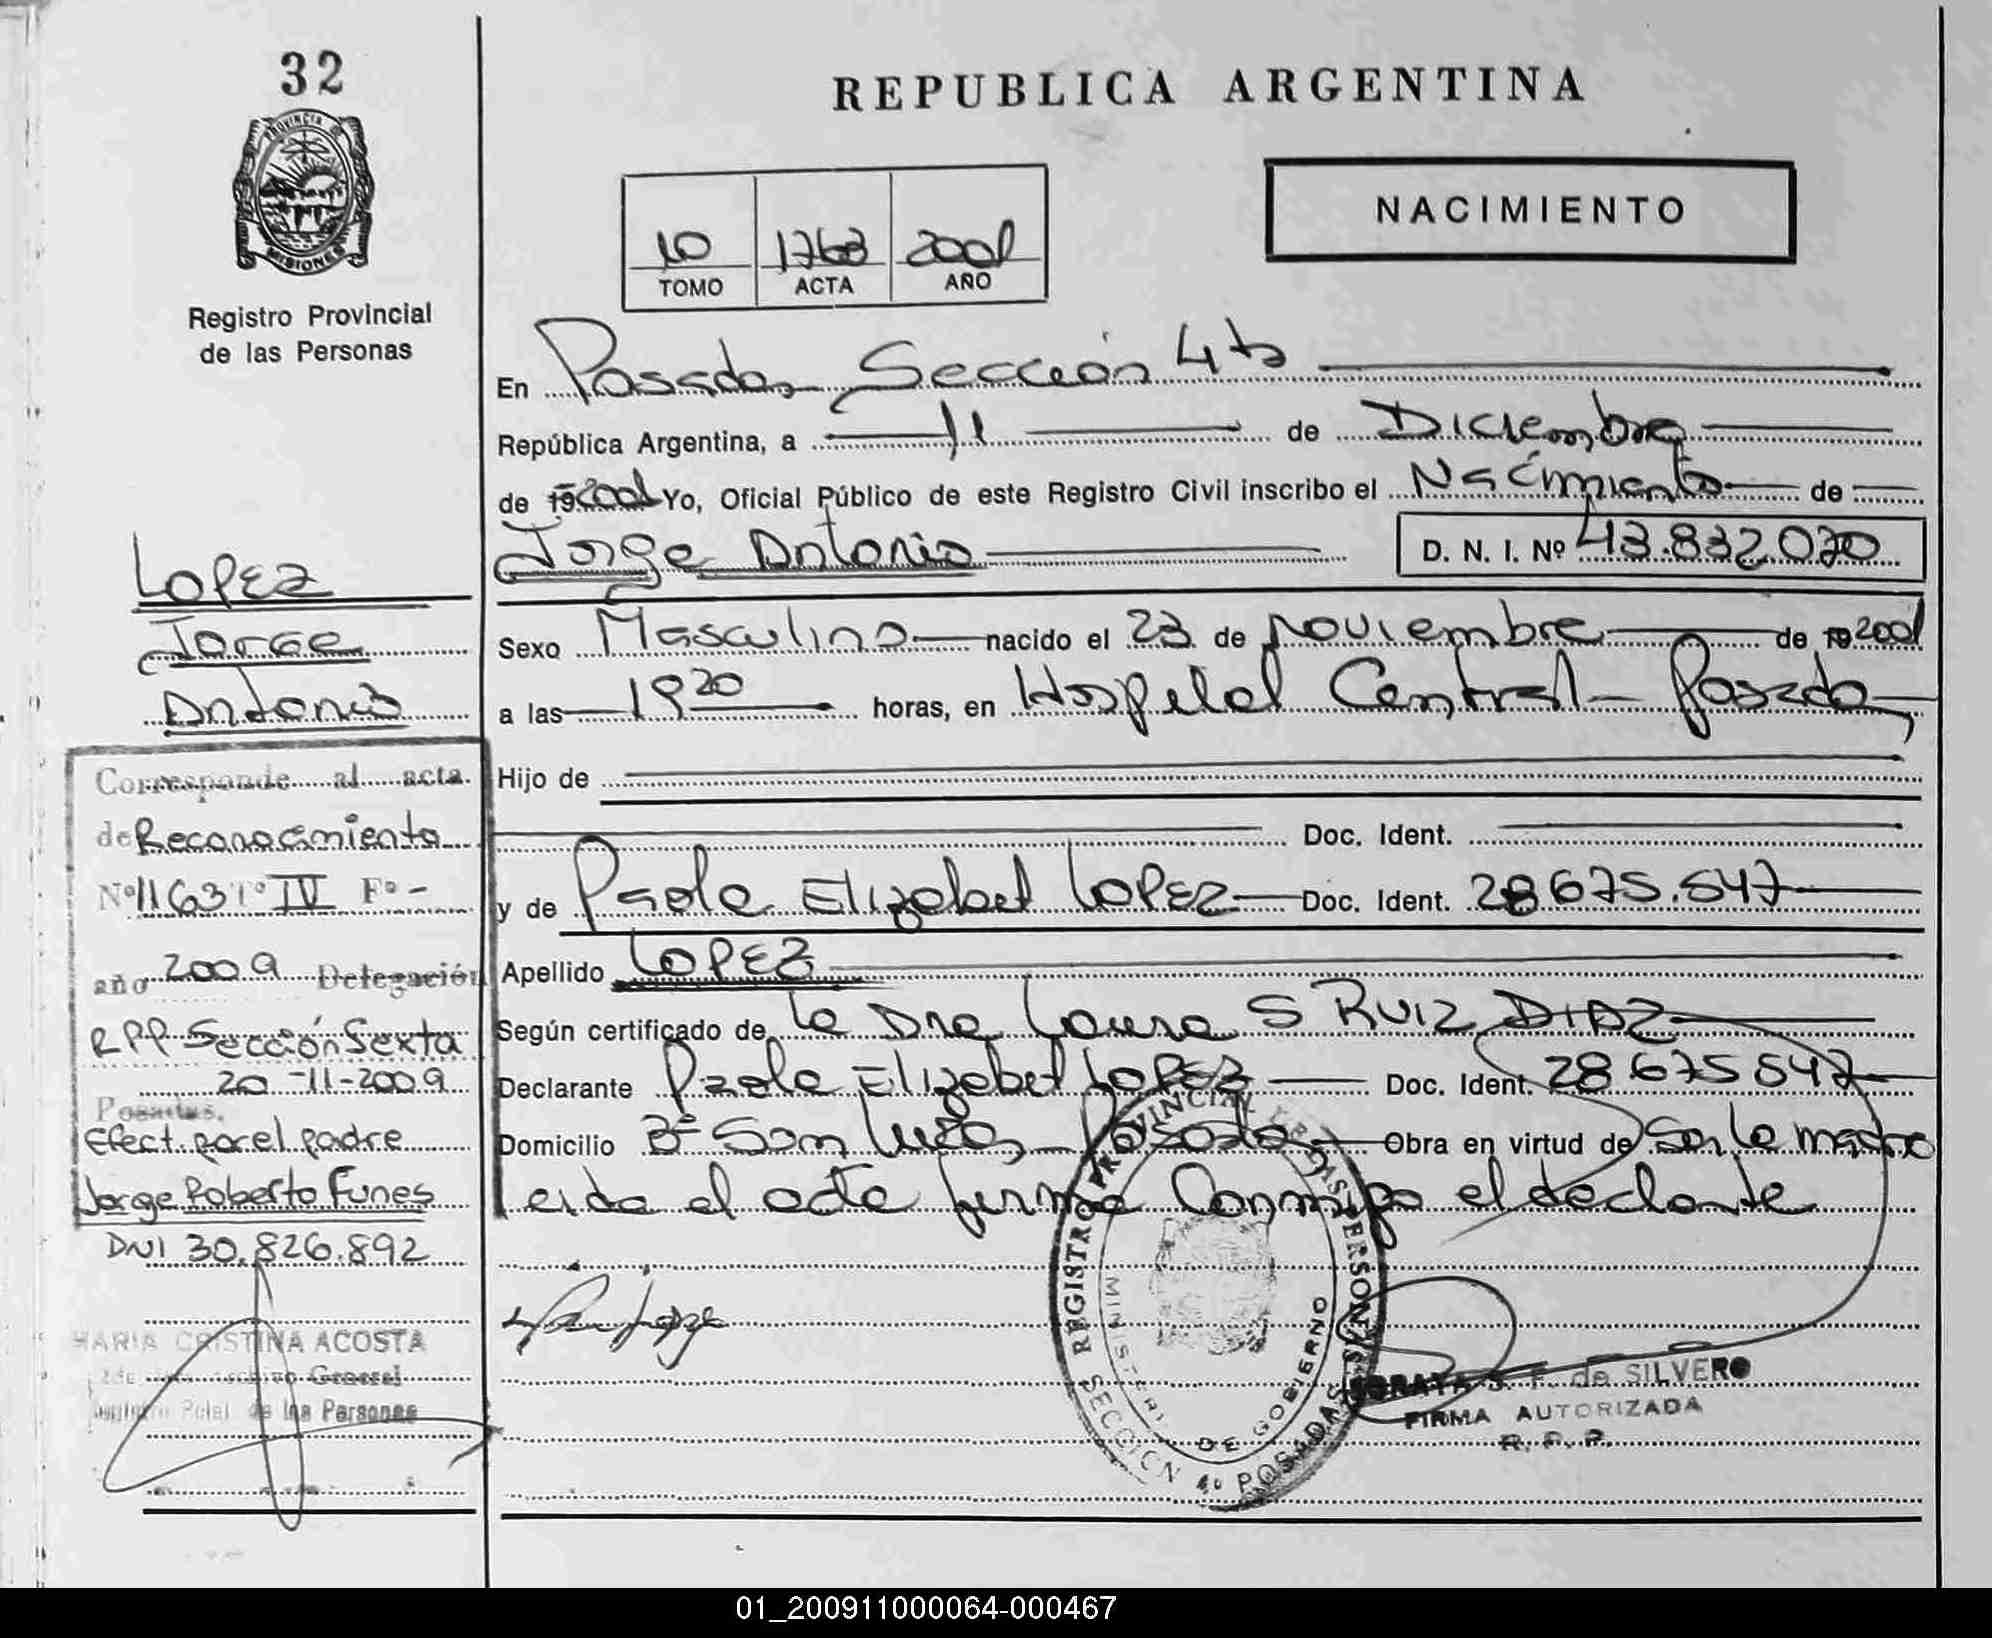 32
PROVINCIA DE
MISIONES
Registro Provincial
de las Personas
REPUBLICA ARGENTINA
NACIMIENTO
10 1768 2001
TOMO ACTA AÑO
En Posadas, Sección 4ta
República Argentina, a 11 de Diciembre
de 19 2001 Yo, Oficial Público de este Registro Civil inscribo el Nacimiento de
Jorge Antonio D. N. I. Nº 43.832.070
Sexo Masculino nacido el 23 de Noviembre de 19 2001
a las 19 20 horas, en Hospital Central - Posadas
Hijo de
Doc. Ident.
y de Paola Elizabet LOPEZ Doc. Ident. 28.675.547
Apellido LOPEZ
Según certificado de la Dra Laura S RUIZ DIAZ
Declarante Paola Elizabet LOPEZ Doc. Ident. 28.675547
Domicilio Bº San Lucas - Posadas Obra en virtud de Ser la madre
leida el acta firma Conmigo el declarante
LOPEZ
Jorge
Antonio
Corresponde al acta
de Reconocimiento
Nº 1163 Tº IV Fº -
año 2009 Delegación
RPP Sección Sexta
20-11-2009
Posadas,
Efect. por el padre
Jorge Roberto Funes
DNI 30.826.892
MARIA CRISTINA ACOSTA
Archivo General
de las Personas
REGISTRO PROVINCIAL DE LAS PERSONAS
MINISTERIO DE GOBIERNO
SECCION 4º POSADAS
S. F. de SILVERO
FIRMA AUTORIZADA
R. P. P.
01_200911000064-000467